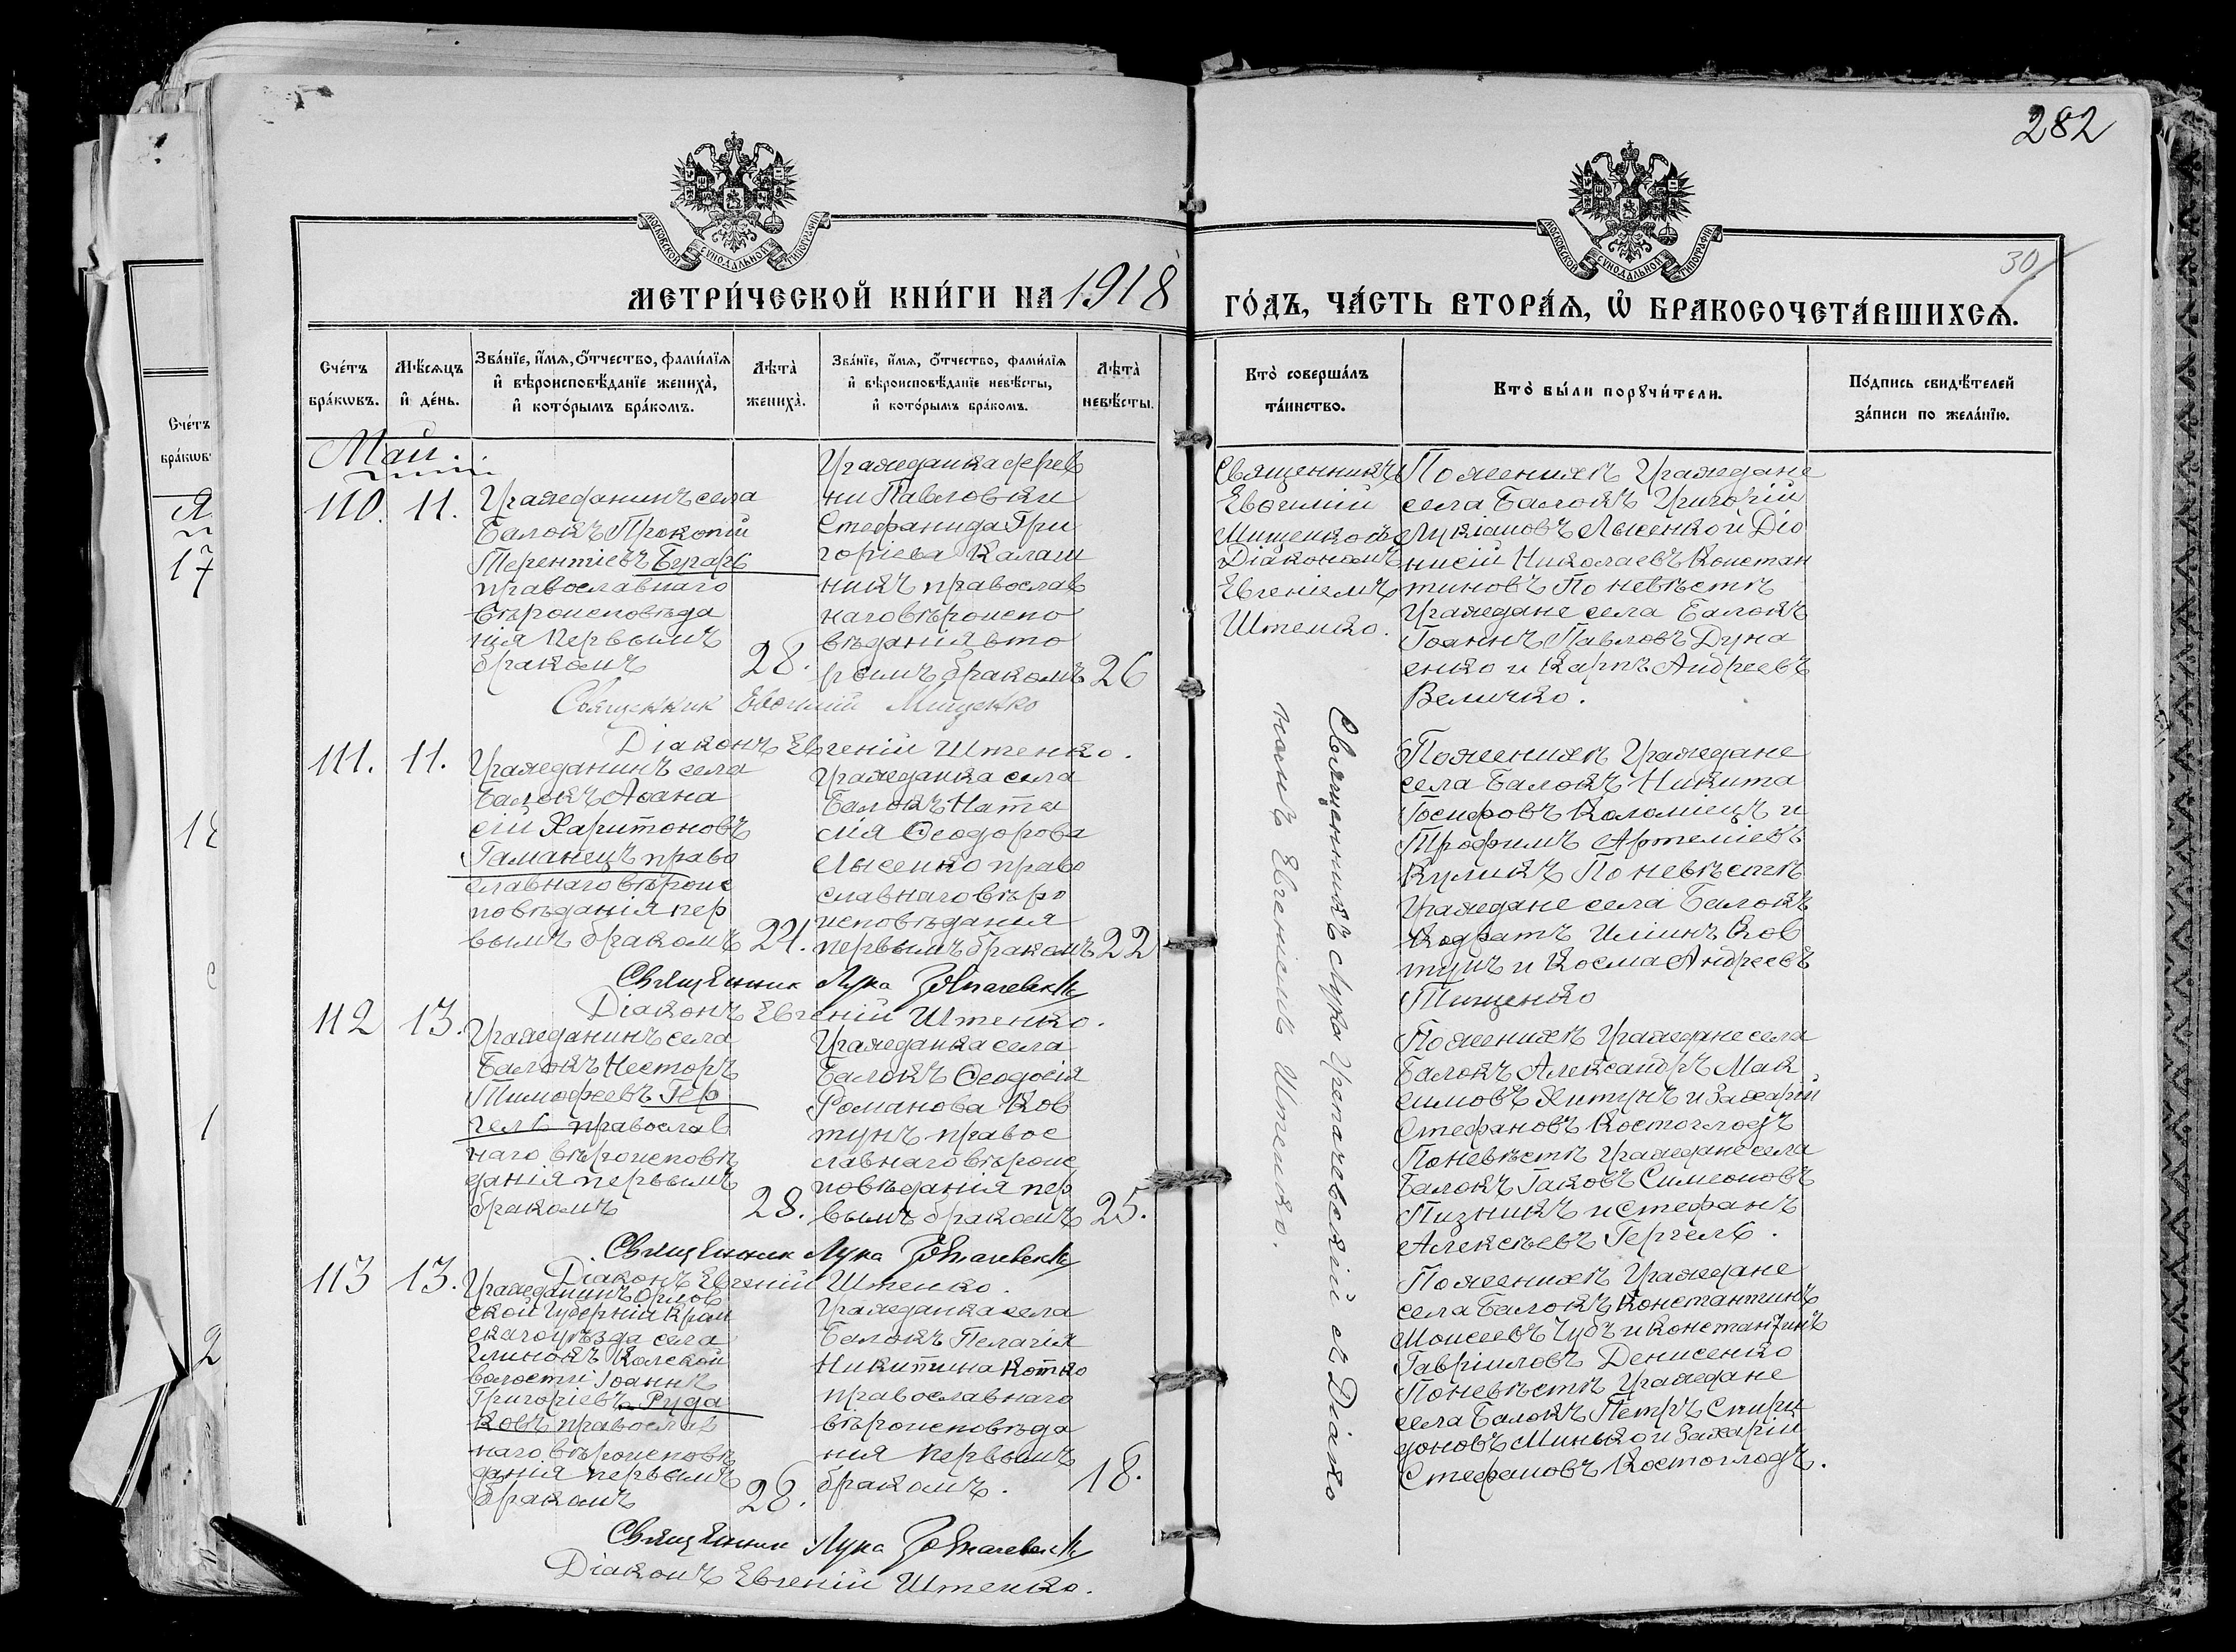 282
30
МОСКОВСКОЙ СѴНОДАЛЬНОЙ ТИПОГРАФІИ
МОСКОВСКОЙ СѴНОДАЛЬНОЙ ТИПОГРАФІИ
МЕТРИ́ЧЕСКОЙ КНИ́ГИ НА 1918
ГО́ДЪ, ЧА́СТЬ ВТОРА́Ѧ, Ѡ҆ БРАКОСОЧЕТА́ВШИХСѦ.
Сче́тъ бра́кѡвъ.
Мѣ́сѧцъ и҆ де́нь.
Зва́нїе, и҆́мѧ, ѻ҆́тчество, фами́лїѧ и҆ вѣроисповѣ́данїе жениха̀, и҆ кото́рымъ бра́комъ.
Лѣ́та̀ жениха̀.
Зва́нїе, и҆́мѧ, ѻ҆́тчество, фами́лїѧ и҆ вѣроисповѣ́данїе невѣ́сты, и҆ кото́рымъ бра́комъ.
Лѣ́та̀ невѣ́сты.
Кто̀ соверша́лъ та́инство.
Кто̀ бы́ли порꙋчи́тели.
По́дпись свидѣ́телей за́писи по жела́нїю.
Сче́тъ
бра́кѡв
17
Май.
110. 11.
Гражданинъ села
Балокъ Прокопій
Терентіевъ Бугарь
православнаго
вѣроисповѣда
нія первымъ
бракомъ
28.
Гражданка дерев
ни Павловки
Стефанида Гри
горіева Калаш
никъ православ
наго вѣроиспо
вѣданія вто
рымъ бракомъ
26
Священникъ
Евѳимій
Мищенко съ
Діакономъ
Евгеніемъ
Штенко.
По женихѣ Граждане
села Балокъ Григорій
Лукіановъ Лысенко и Діо
нисій Николаевъ Констан
тиновъ По невѣстѣ
Граждане села Балокъ
Іоаннъ Павловъ Дуна
енко и Карпъ Андреевъ
Величко.
Священник Евѳимій Мищенко
Діаконъ Евгеній Штенко.
111. 11.
Гражданинъ села
Балокъ Аѳана
сій Харитоновъ
Гаманецъ право
славнаго вѣроис
повѣданія пер
вымъ бракомъ
24.
Гражданка села
Балокъ Ната
лія Ѳеодорова
Лысенко право
славнаго вѣро
исповѣдания
первымъ бракомъ
22
По женихѣ Граждане
села Балокъ Никита
Іосифовъ Коломіецъ и
Трофимъ Артеміевъ
Куликъ По невѣстѣ
Граждане села Балокъ
Кодратъ Илиинъ Ков
тунъ и Косма Андреевъ
Тищенко
Священник Лука
Діаконъ Евгеній Штенко.
112 13.
Гражданинъ села
Балокъ Несторъ
Тимофеевъ Гер
гель православ
наго вѣроисповѣ
данія первымъ
бракомъ
28.
Гражданка села
Балокъ Ѳеодосія
Романова Ков
тунъ правос
лавнаго вѣроис
повѣданія пер
вымъ бракомъ
25.
По женихѣ Граждане села
Балокъ Александръ Мак
симовъ Хитунъ и Захарій
Стефановъ Костоглодъ
По невѣстѣ Граждане села
Балокъ Іаковъ Симеоновъ
Пизникъ и Стефанъ
Алексѣевъ Гергель.
Священник Лука
Діаконъ Евгеній Штенко.
113 13.
Гражданинъ Орлов
ской Губерніи Кром
скаго уѣзда села
Глинокъ
волости Іоаннъ
Григоріевъ Руда
ковъ православ
наго вѣроисповѣ
данія первымъ
бракомъ
28.
Гражданка села
Балокъ Пелагія
Никитина Котко
православнаго
вѣроисповѣда
нія первымъ
бракомъ.
18.
По женихѣ Граждане
села Балокъ Константинъ
Моисеевъ Чубъ и Константинъ
Гавріиловъ Денисенко
По невѣстѣ Граждане
села Балокъ Петръ Спири
доновъ Минько и Захарій
Стефановъ Костоглодъ.
Священник Лука
Діаконъ Евгеній Штенко.
Священникъ Лука съ Діако
номъ Евгеніемъ Штенко.